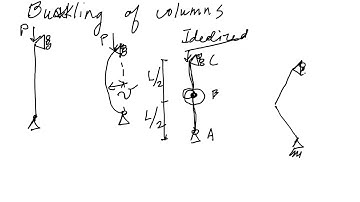 Buckling of columns
P
P
Idealized
L/2
C
v
B
L/2
A